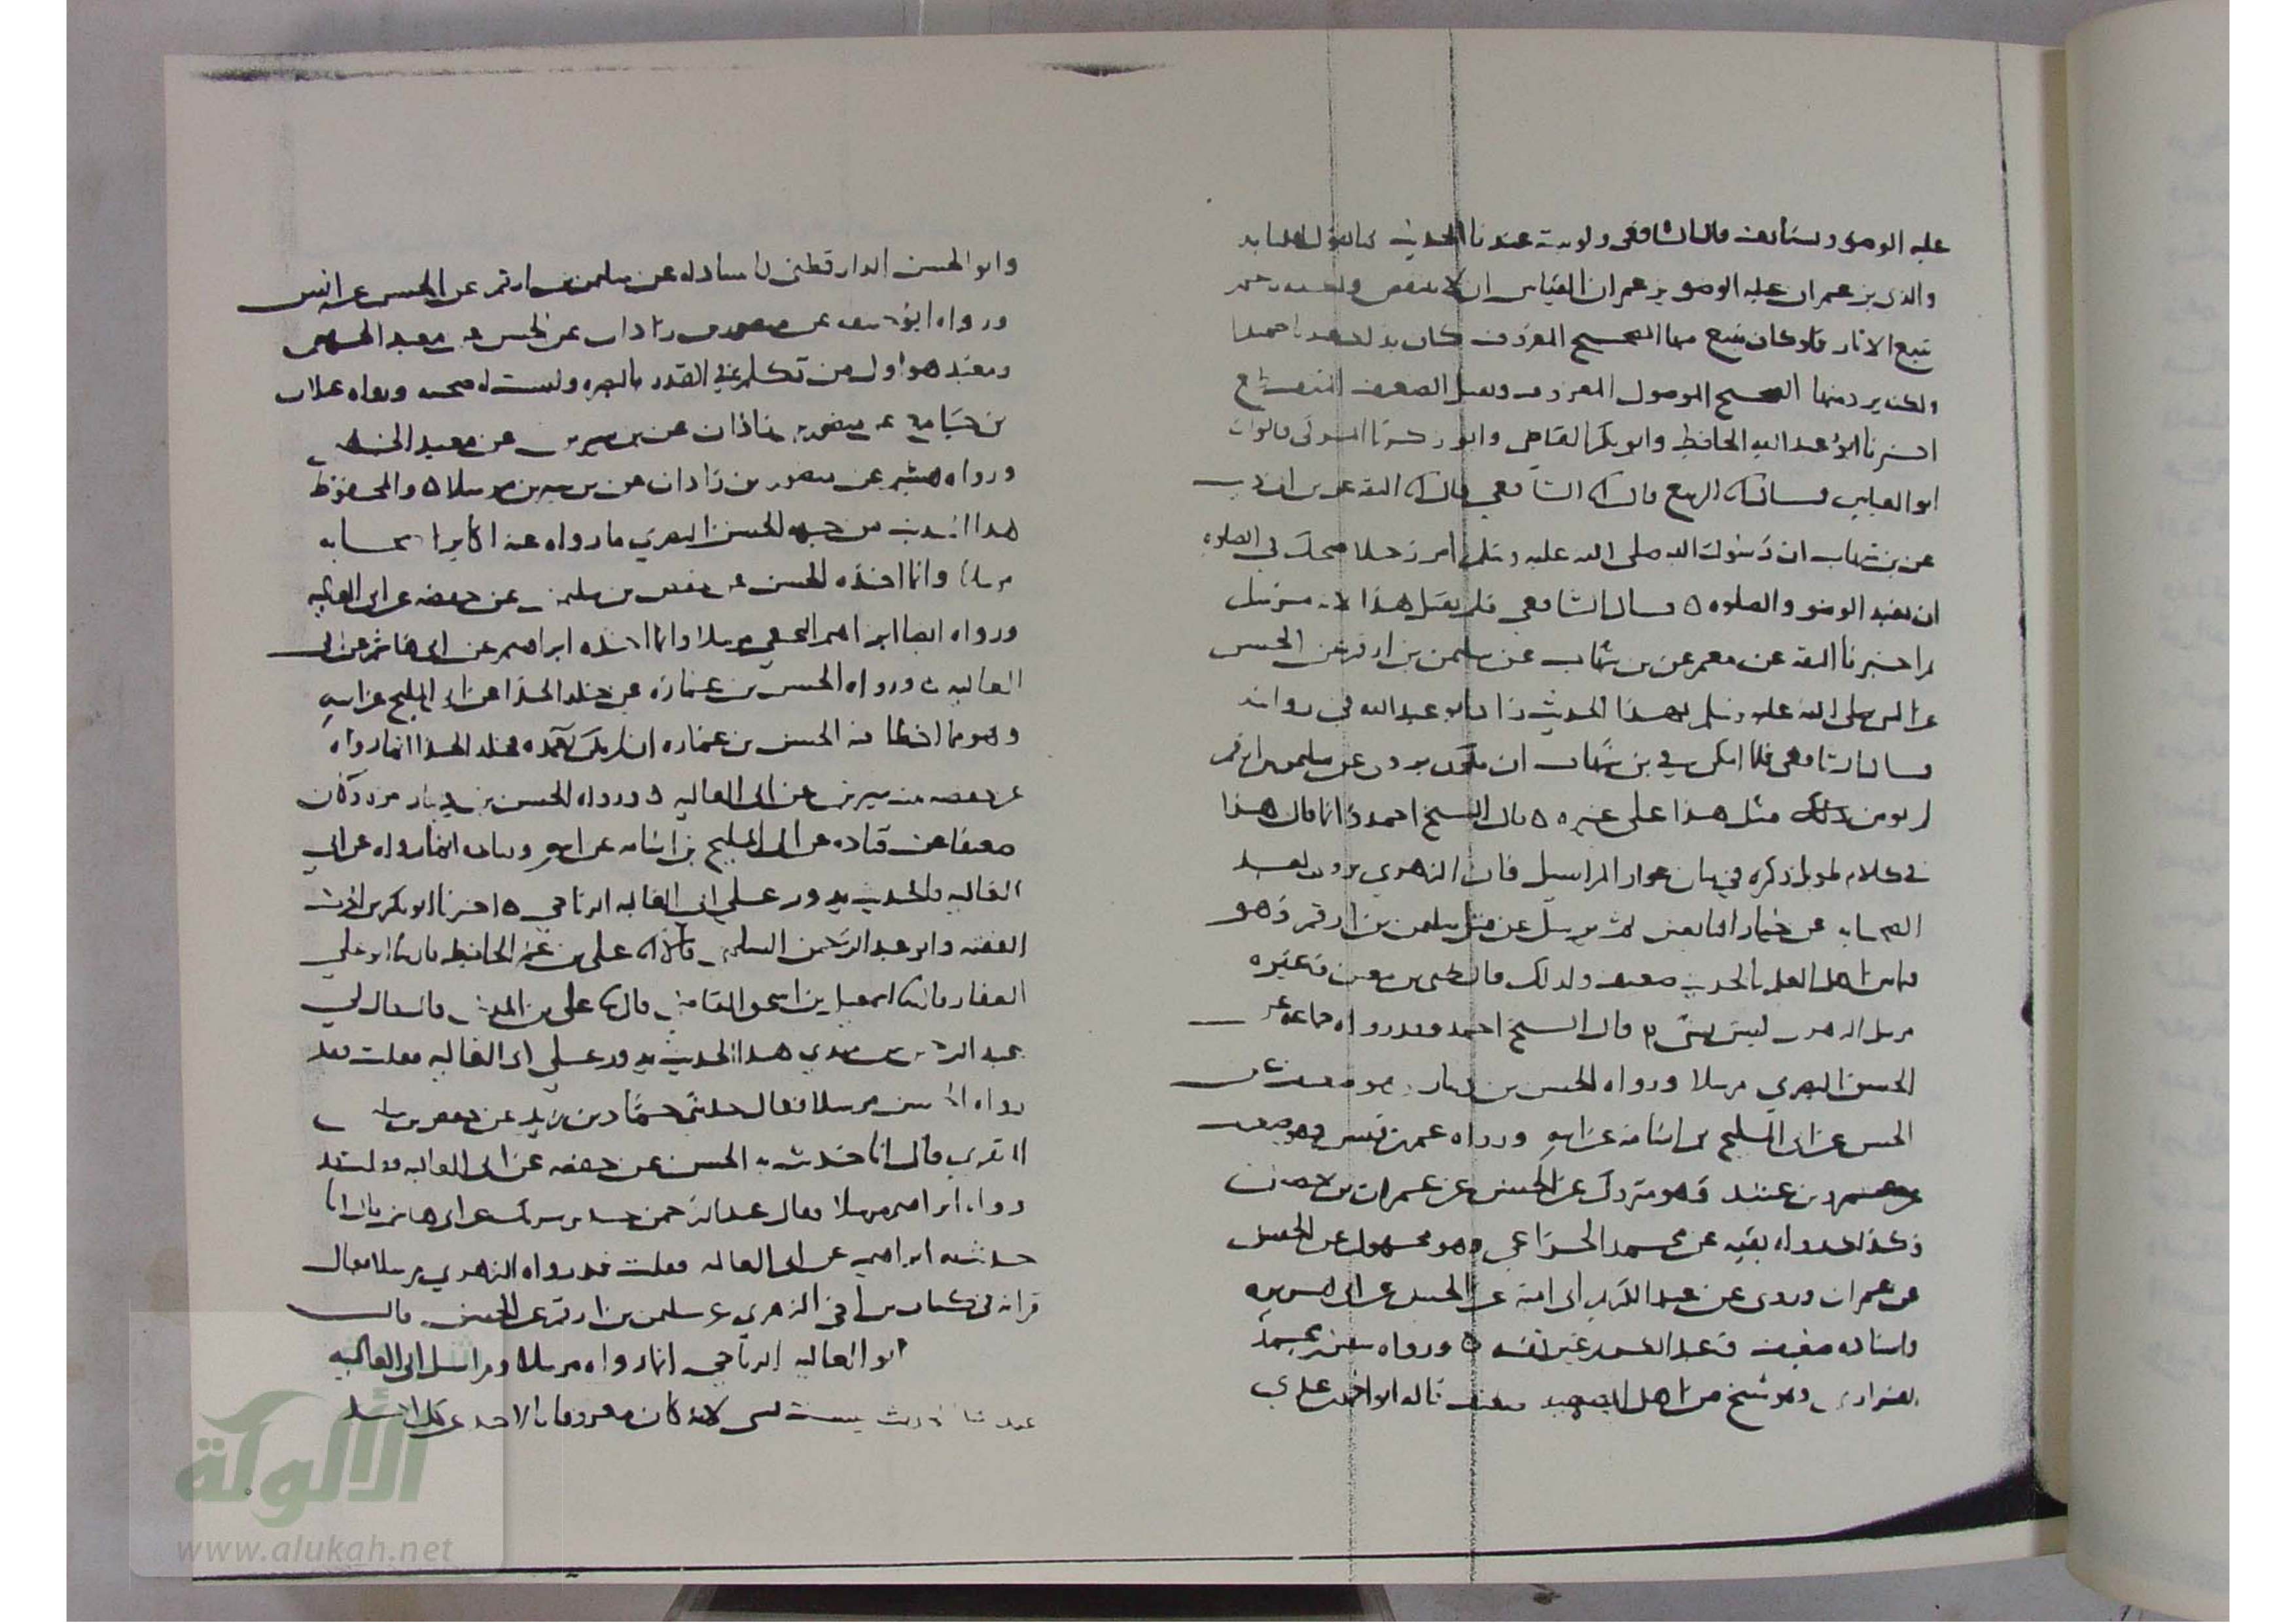 عليه الوضو ويستانف قال الشافعي ولو ثبت عندنا الحديث بما يقول لقلنا به
والذي يزعم ان عليه الوضو يزعم ان القياس ان لا ينقض ولكنه زعم
تتبع الاثار فلو كان تتبع منها الصحيح المعروف كان بذلك عندنا حميدا
ولكنه يرد منها الصحيح الموصول المعروف ويقبل الضعيف المنقطع
اخبرنا ابو عبد الله الحافظ وابو بكر القاضي وابو زكريا المزكي قالوا نا
ابو العباس قال انا الربيع قال انا الشافعي قال انا الثقة عن بن ابي ذيب
عن بن شهاب ان رسول الله صلى الله عليه وسلم امر رجلا ضحك في الصلوه
ان يعيد الوضو والصلوه ه قال الشافعي فلم يقبل هذا لانه مرسل
ثم اخبرنا الثقة عن معمر عن بن شهاب عن سليمن بن ارقم عن الحسن
عن النبي صلى الله عليه وسلم بهذا الحديث زاد ابو عبد الله في روايته
قال الشافعي فلما امكن في بن شهاب ان يكون يروي عن سليمن بن ارقم
لم يومن مثل هذا على غيره ه قال الشيخ احمد وانما قال هذا
في كلام طويل ذكره في بيان عوار المراسيل فان الزهري يروي بعد
الصحابه عن خيار التابعين ثم يرسل عن مثل سليمن بن ارقم وهو
فيما بين اهل العلم بالحديث ضعيف ولذلك قال يحيى بن معين وغيره
مرسل الزهري ليس بشي ه قال الشيخ احمد وقد رواه جماعة عن
الحسن البصري مرسلا ورواه الحسن بن دينار وهو ضعيف عن
الحسن عن ابي المليح بن اسامة عن ابيه ورواه عمر بن قيس وهو ضعيف
عن عمرو بن عبيد وهو متروك عن الحسن عن عمران بن حصين
وكذلك رواه بقيه عن محمد الخزاعي وهو مجهول عن الحسن
عن عمران وروي عن عبد الكريم ابي امية عن الحسن عن ابي هريره
واسناده ضعيف وعبد الكريم غير ثقه ه ورواه سفين بن محمد
الفزاري وهو شيخ من اهل المصيصه ضعيف قاله ابو احمد بن عدي
وابو الحسن الدارقطني باسناده عن سليمن بن ارقم عن الحسن عن انس
ورواه ابو حنيفه عن منصور بن زاذان عن الحسن عن معبد الجهني
ومعبد هو اول من تكلم في القدر بالبصره وليست له صحبه ورواه غيلان
بن جامع عن منصور بن زاذان عن بن سيرين عن معبد الجهني
ورواه هشيم عن منصور بن زاذان عن بن سيرين مرسلا ه والمحفوظ
هذا الحديث من جهه الحسن البصري ما رواه عنه اكابر اصحابه
مرسلا وانما اخذه الحسن عن حفص بن سليمن عن حفصه عن ابي العاليه
ورواه ايضا ابراهيم النخعي مرسلا وانما اخذه ابراهيم عن ابي هاشم عن ابي
العاليه ه ورواه الحسن بن عماره عن خالد الحذا عن ابي المليح عن ابيه
وهو مما اخطا فيه الحسن بن عماره ان لم يكن تعمده فخالد الحذا انما رواه
عن حفصه بنت سيرين عن ابي العاليه ه ورواه الحسن بن دينار مره وكان
ضعيفا عن قتاده عن ابي المليح بن اسامه عن ابيه وقتاده انما رواه عن ابي
العاليه والحديث يدور على ابي العاليه الرياحي ه اخبرنا ابو بكر بن الحارث
الفقيه وابو عبد الرحمن السلمي قالا انا علي بن عمر الحافظ قال نا ابو علي
الصفار قال نا اسمعيل بن اسحق القاضي قال نا علي بن المديني قال قال لي
عبد الرحمن بن مهدي هذا الحديث يدور على ابي العاليه فقلت فقد
رواه الحسن مرسلا فقال حدثني حماد بن زيد عن حفص بن سليمن
المنقري قال انا حدثت به الحسن عن حفصه عن ابي العاليه فقلت قد
رواه ابراهيم مرسلا فقال عبد الرحمن حدثني شريك عن ابي هاشم قال انا
حدثت به ابراهيم عن ابي العاليه فقلت قد رواه الزهري مرسلا فقال
قراته في كتاب بن اخي الزهري عن سليمن بن ارقم عن الحسن قال
ابو العاليه الرياحي انما رواه مرسلا ومراسيل ابي العاليه
ليست بشي لانه كان معروفا بالاخذ عن كل احد
الألوكة
www.alukah.net